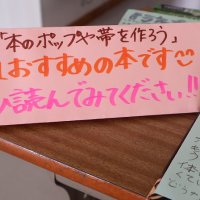 「本のポップや帯を作ろう」
おすすめの本です
読んでみてください!!